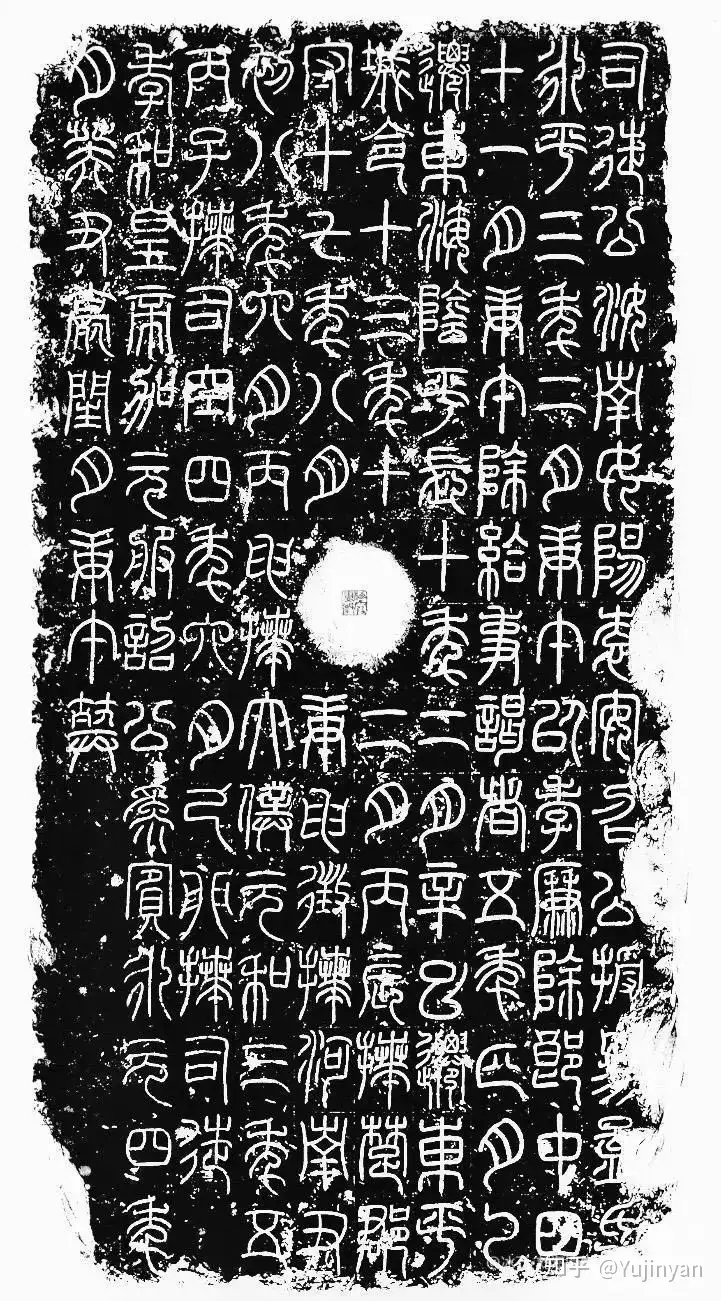 司徒公汝南女陽袁安召公授易孟氏
永平三年二月庚午以孝廉除郎中四
十一月庚午除給事謁者五年月乙
遷東海陰平長十年二月辛巳遷東平
城令十三年十二月丙辰拜楚郡
守十七年八月庚申徵拜河南尹
初八年六月丙申拜太僕元和三年五
丙子拜司空四年六月己卯拜司徒
孝和皇帝加元服詔公為賓永元四年
月癸丑薨閏月庚午葬
知乎 @Yujinyan